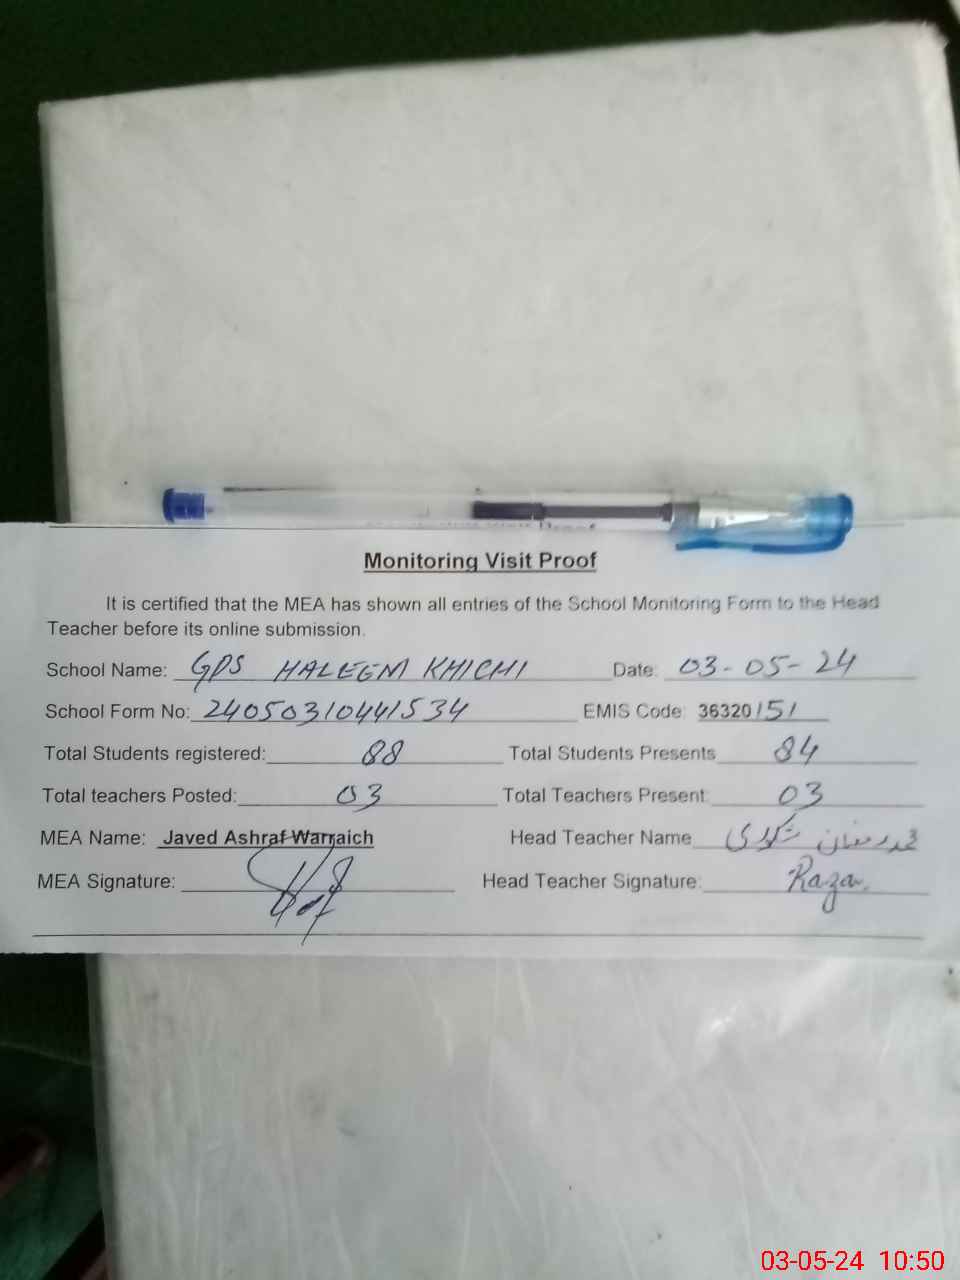 Monitoring Visit Proof
It is certified that the MEA has shown all entries of the School Monitoring Form to the Head
Teacher before its online submission.
School Name: GPS HALEEM KHICHI Date: 03-05-24
School Form No: 24050310441534 EMIS Code: 36320151
Total Students registered: 88 Total Students Presents 84
Total teachers Posted: 03 Total Teachers Present: 03
MEA Name: Javed Ashraf Warraich Head Teacher Name محمد رمضان
MEA Signature: Head Teacher Signature: Raza
03-05-24 10:50